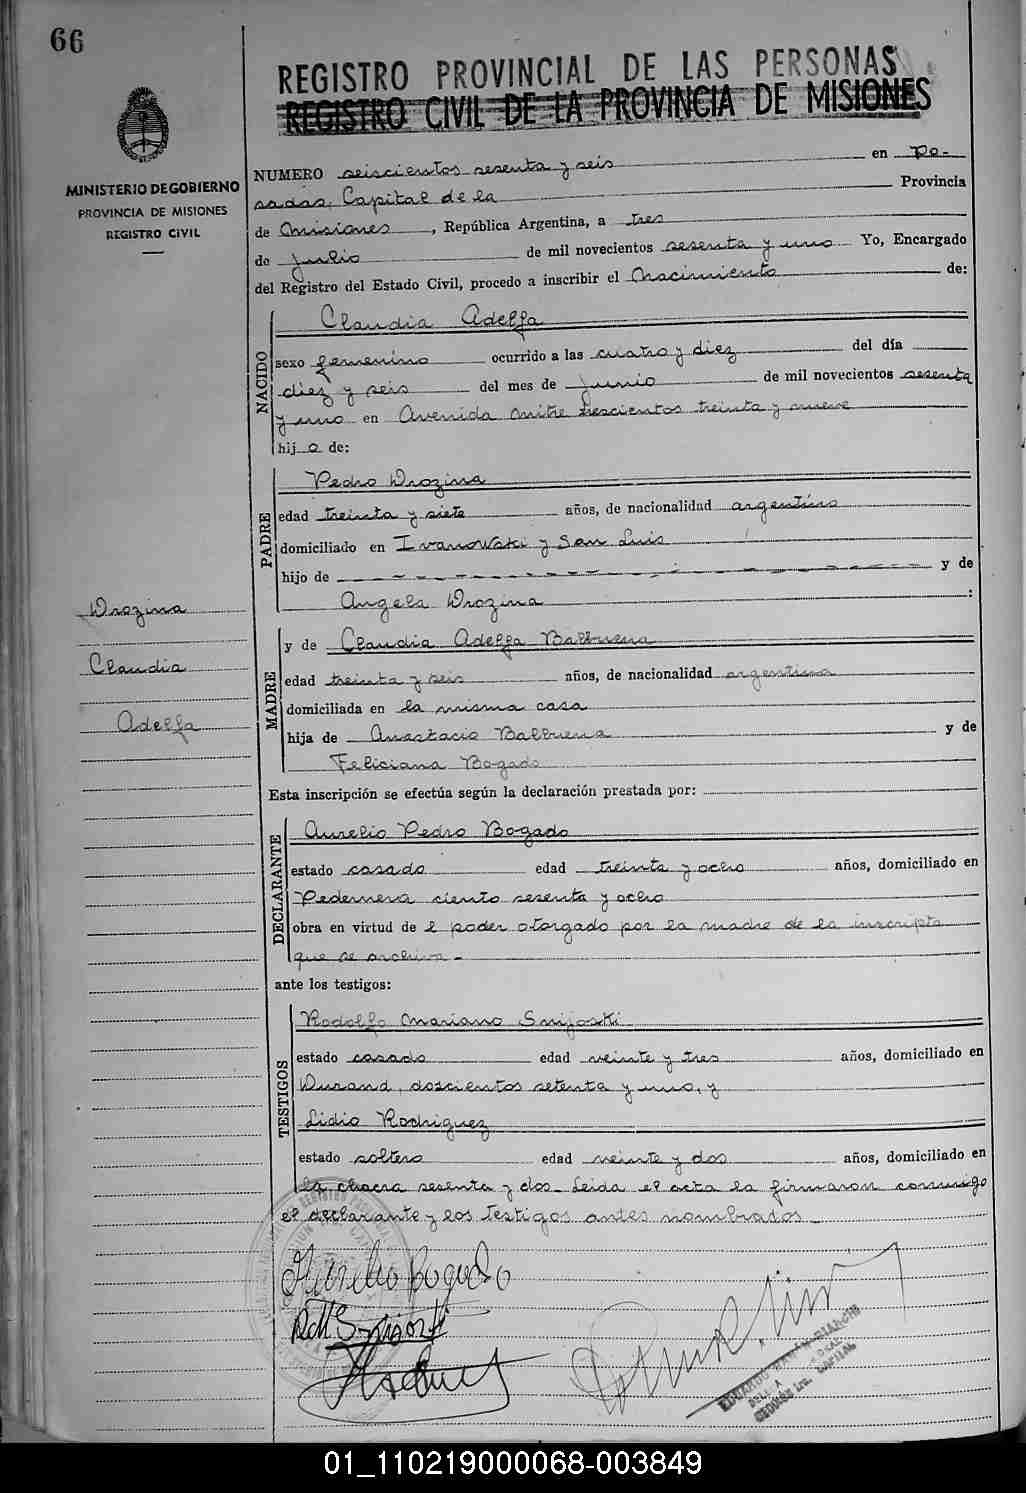 66
REGISTRO PROVINCIAL DE LAS PERSONAS
REGISTRO CIVIL DE LA PROVINCIA DE MISIONES
MINISTERIO DE GOBIERNO
PROVINCIA DE MISIONES
REGISTRO CIVIL
NUMERO seiscientos sesenta y seis en Po-
sadas, Capital de la Provincia
de Misiones, República Argentina, a tres
de Julio de mil novecientos sesenta y uno Yo, Encargado
del Registro del Estado Civil, procedo a inscribir el Nacimiento de:
NACIDO
Claudia Adelfa
sexo femenino ocurrido a las cuatro y diez del día
diez y seis del mes de Junio de mil novecientos sesenta
y uno en Avenida Mitre trescientos treinta y nueve
hija de:
PADRE
Pedro Drozina
edad treinta y siete años, de nacionalidad argentino
domiciliado en Ivanowski y San Luis
hijo de - - - - - - - - - - y de
Angela Drozina :
Drozina
Claudia
Adelfa
MADRE
y de Claudia Adelfa Balbuena
edad treinta y seis años, de nacionalidad argentina
domiciliada en la misma casa
hija de Anastacio Balbuena y de
Feliciana Bogado
Esta inscripción se efectúa según la declaración prestada por:
DECLARANTE
Aurelio Pedro Bogado
estado casado edad treinta y ocho años, domiciliado en
Pedernera ciento sesenta y ocho
obra en virtud de l poder otorgado por la madre de la inscripta
que se archiva -
ante los testigos:
TESTIGOS
Rodolfo Mariano Snijoski
estado casado edad veinte y tres años, domiciliado en
Durand, doscientos setenta y uno, y
Lidio Rodriguez
estado soltero edad veinte y dos años, domiciliado en
la chacra sesenta y dos - Leida el acta la firmaron conmigo
el declarante y los testigos antes nombrados -
Aurelio Bogado
01_110219000068-003849